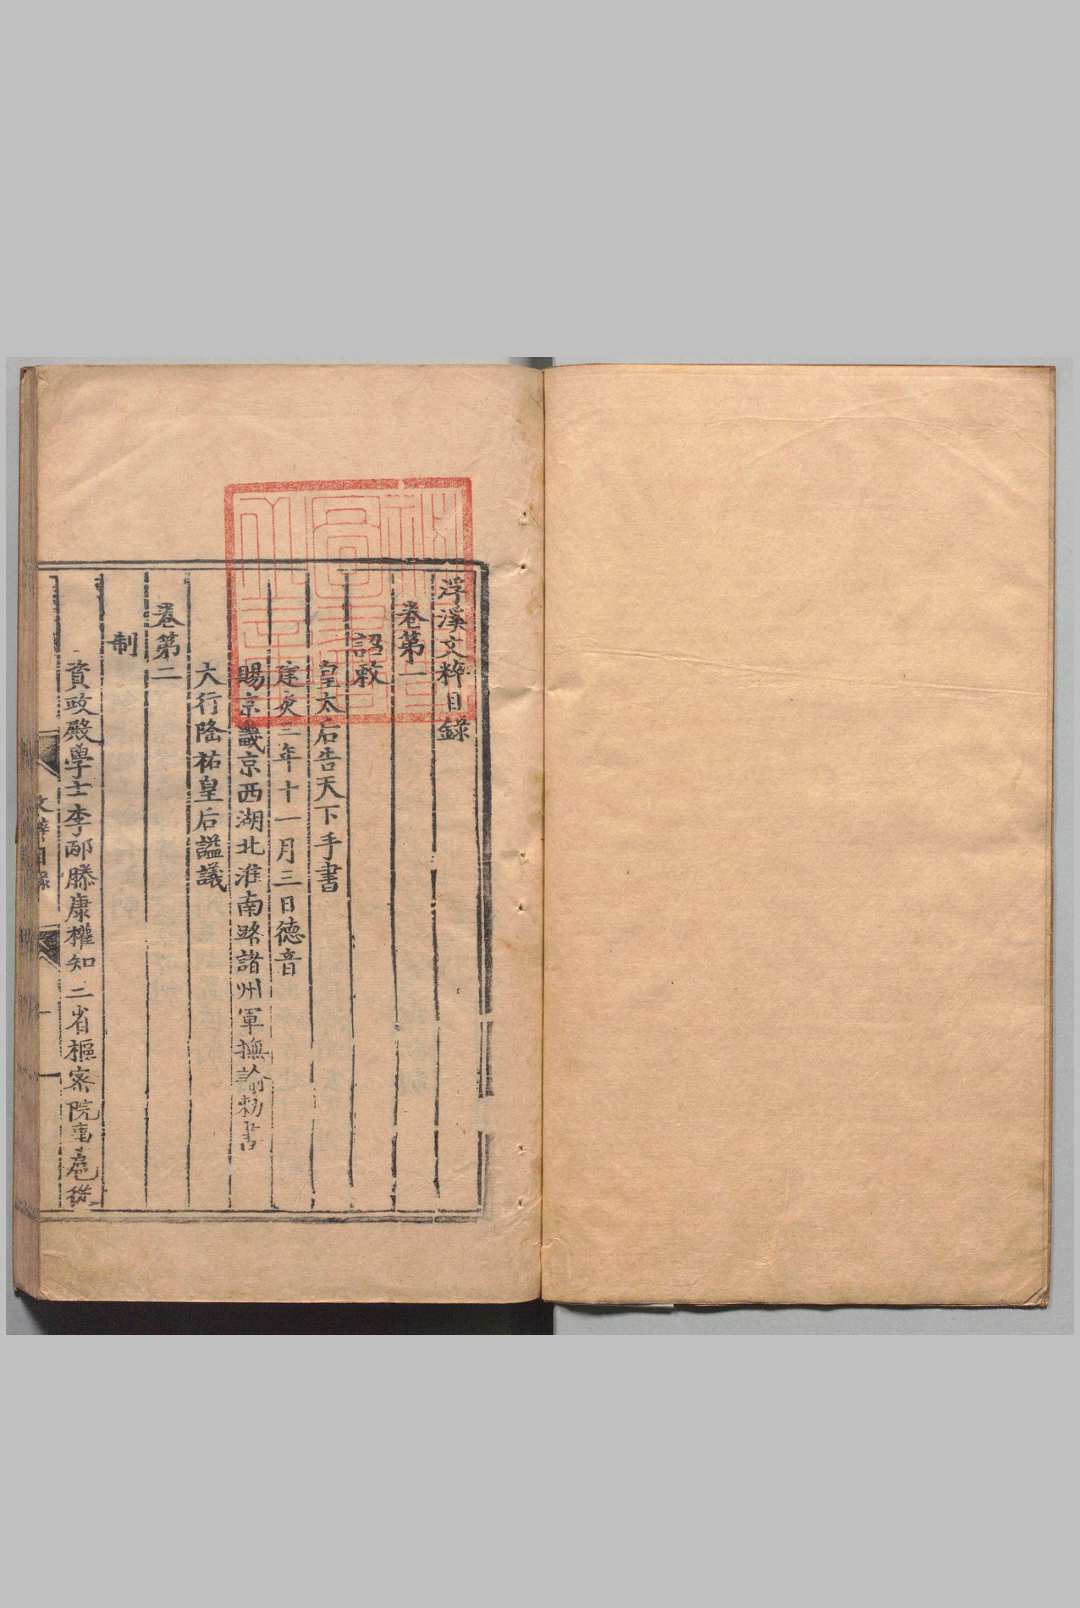 浮溪文粹目錄
卷第一
詔敕
皇太后告天下手書
建炎三年十一月三日德音
賜京畿京西湖北淮南路諸州軍撫諭勑書
大行隆祐皇后謚議
卷第二
制
資政殿學士李邴滕康權知三省樞密院事扈從
文粹目錄
一